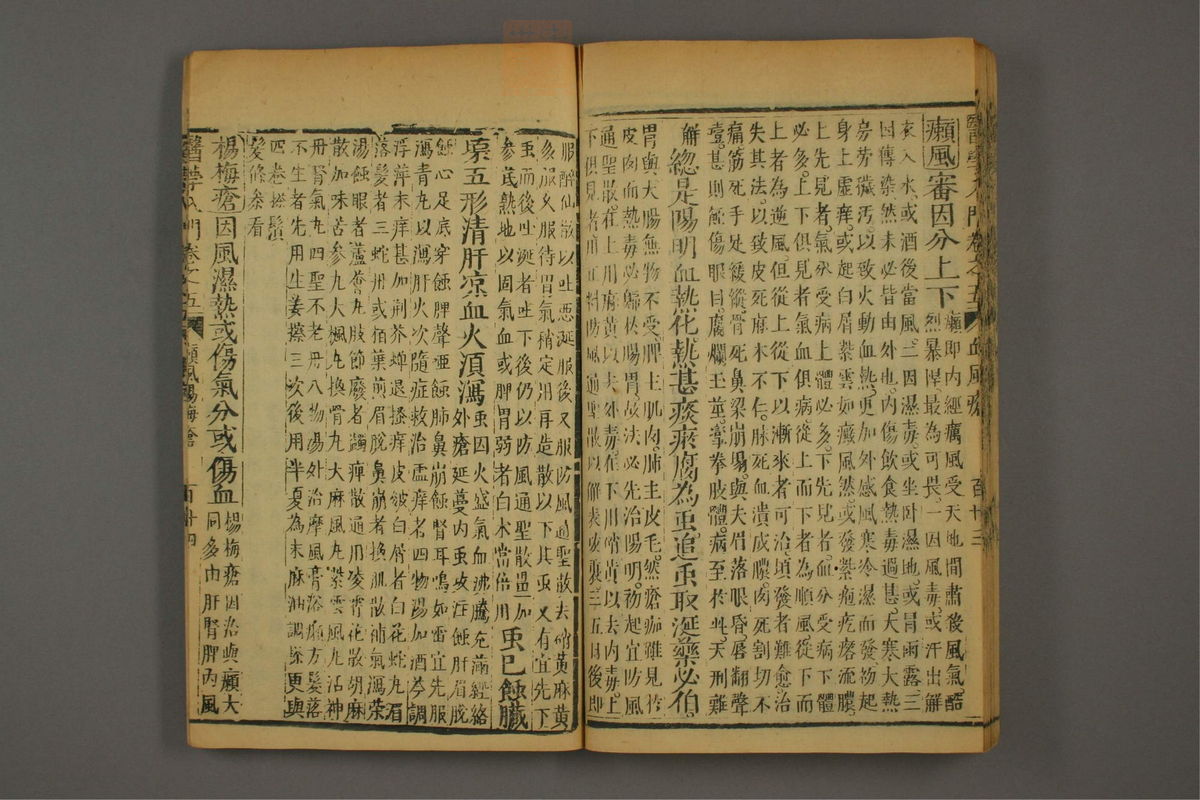 醫學入門 卷之五 血風瘡 百十三
癩風審因分上下 癩即內經癘風受天地間肅後風氣酷
烈暴悍最為可畏一因風毒或汗出解
衣入水或酒後當風二因濕毒或坐卧濕地或冐雨露三
因傳染然未必皆由外也內傷飲食熱毒過甚大寒大熱
房勞穢污以致火動血熱更加外感風寒冷濕而發初起
身上虛痒或起白屑紫雲如癜風然或發紫疱疙瘩流膿
上先見者氣分受病上體必多下先見者血分受病下體
必多上下俱見者氣血俱病從上而下者為順風從下而
上者為逆風但從上從下以漸來者可治頃發者難愈治
失其法以致皮死麻木不仁脉死血潰成膿肉死割切不
痛筋死手足緩縱骨死鼻梁崩塌與夫眉落眼昏唇翻聲
壹甚則蝕傷眼目腐爛玉莖拳肢體病至於此天刑難
解 總是陽明血熱化熱甚痰瘀腐為虫追虫取涎藥必伯
胃與大腸無物不受脾主肌肉肺主皮毛然瘡痂雖見於
皮肉而熱毒必歸於腸胃故法必先治陽明初起宜防風
通聖散在上用麻黃以去外毒在下用硝黃以去內毒上
下俱見者用正料防風通聖散以解表攻裏三五日後即
服醉仙散以吐惡涎服後又服防風通聖散去硝黃麻黃
多服久服待胃氣稍定用再造散以下其虫又有宜先下
虫而後吐涎者吐下後仍以防風通聖散量加
參芪熟地以固氣血或脾胃弱者白朮當倍用 虫已蝕臟
祟五形清肝凉血火湏瀉 虫因火盛氣血沸騰充滿經絡
外瘡延蔓內虫攻注蝕肝眉脫
蝕心足底穿蝕脾聲啞蝕肺鼻崩蝕腎耳鳴如雷宜先服
瀉青丸以瀉肝火次隨症救治盂痒者四物湯加酒芩調
浮萍末痒甚加荆芥蟬退搔痒皮皱白屑者白花蛇丸眉
落髮者三蛇丹或栢葉煎眉脫鼻崩者換肌散補氣瀉榮
湯蝕眼者蘆薈丸肢節廢者蠲痺散通用凌霄花散胡麻
散加味苦參丸大楓丸換骨丸大麻風丸紫雲風丸活神
丹腎氣丸四聖不老丹八物湯外治摩風膏浴癩方髮落
不生者先用生姜擦三次後用半夏為末麻油調搽更與
四卷搽鬚
髮條參看
楊梅瘡因風濕熱或傷氣分或傷血 楊梅瘡因治與癩大
同多由肝腎脾內風
醫學入門 卷之五 癩風 楊梅瘡 百十四